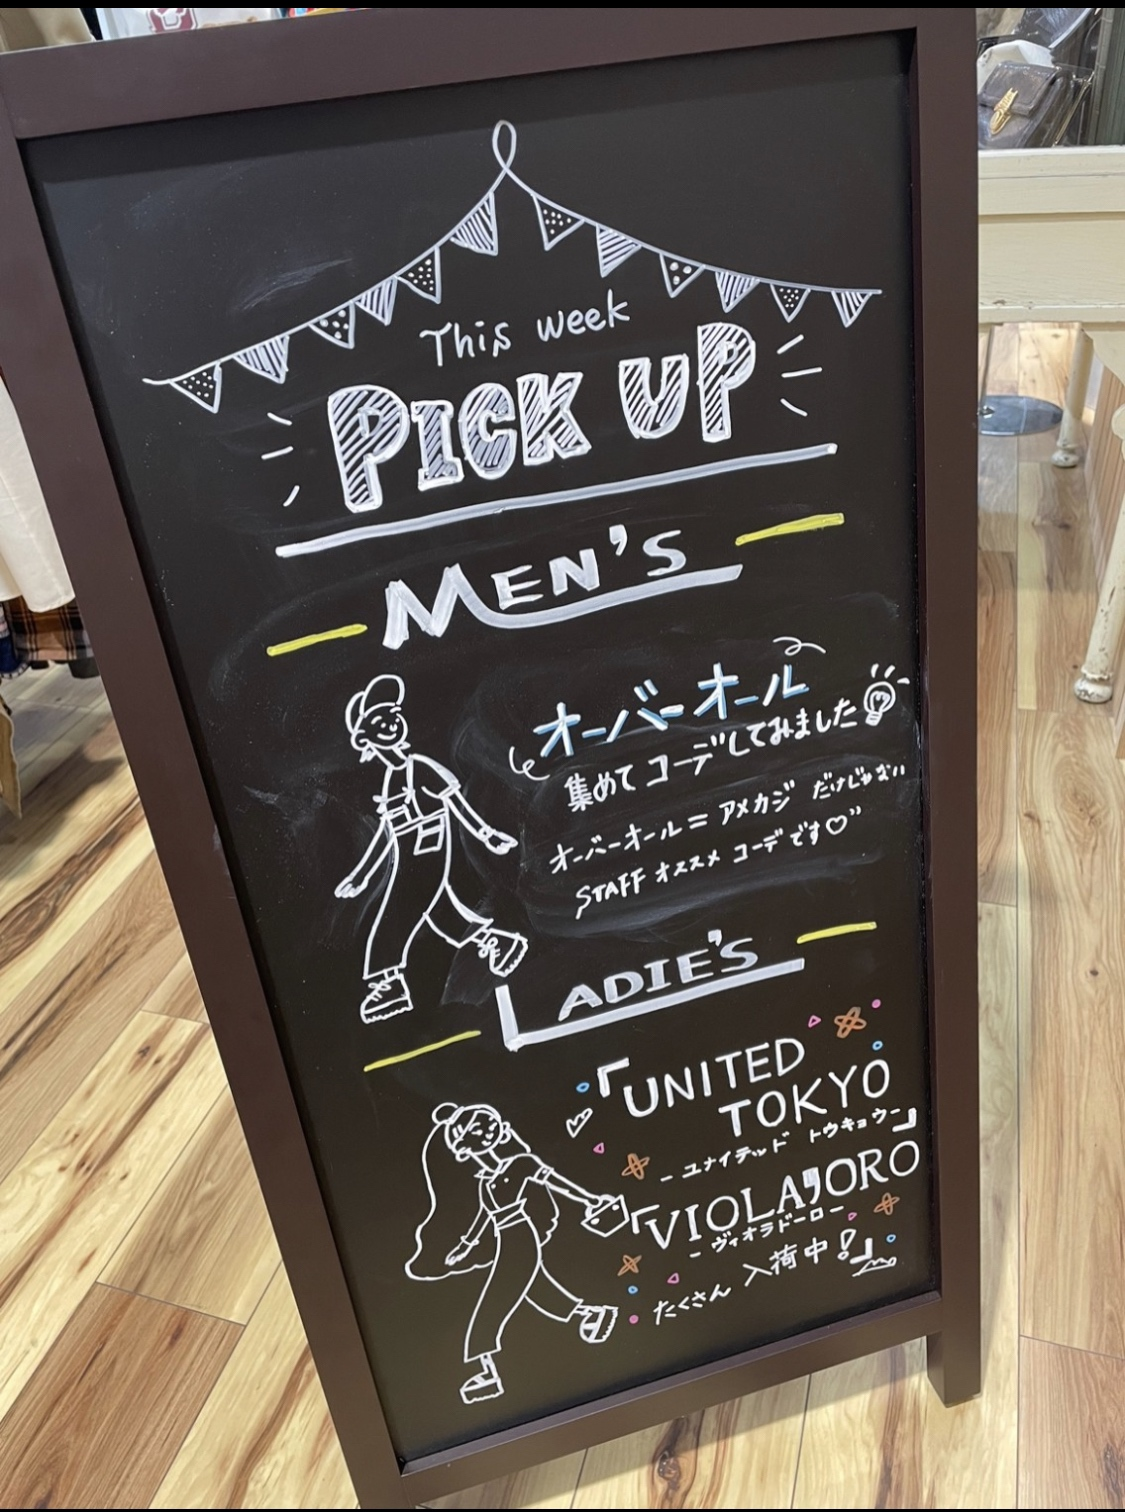 This week
PICK UP
MEN'S
オーバーオール
集めてコーデしてみました
オーバーオール=アメカジ だけじゃない
STAFF オススメ コーデです♡"
LADIE'S
「UNITED
TOKYO
-ユナイテッド トウキョウー」
「VIOLA'ORO
-ヴィオラドーロー
たくさん 入荷中!」